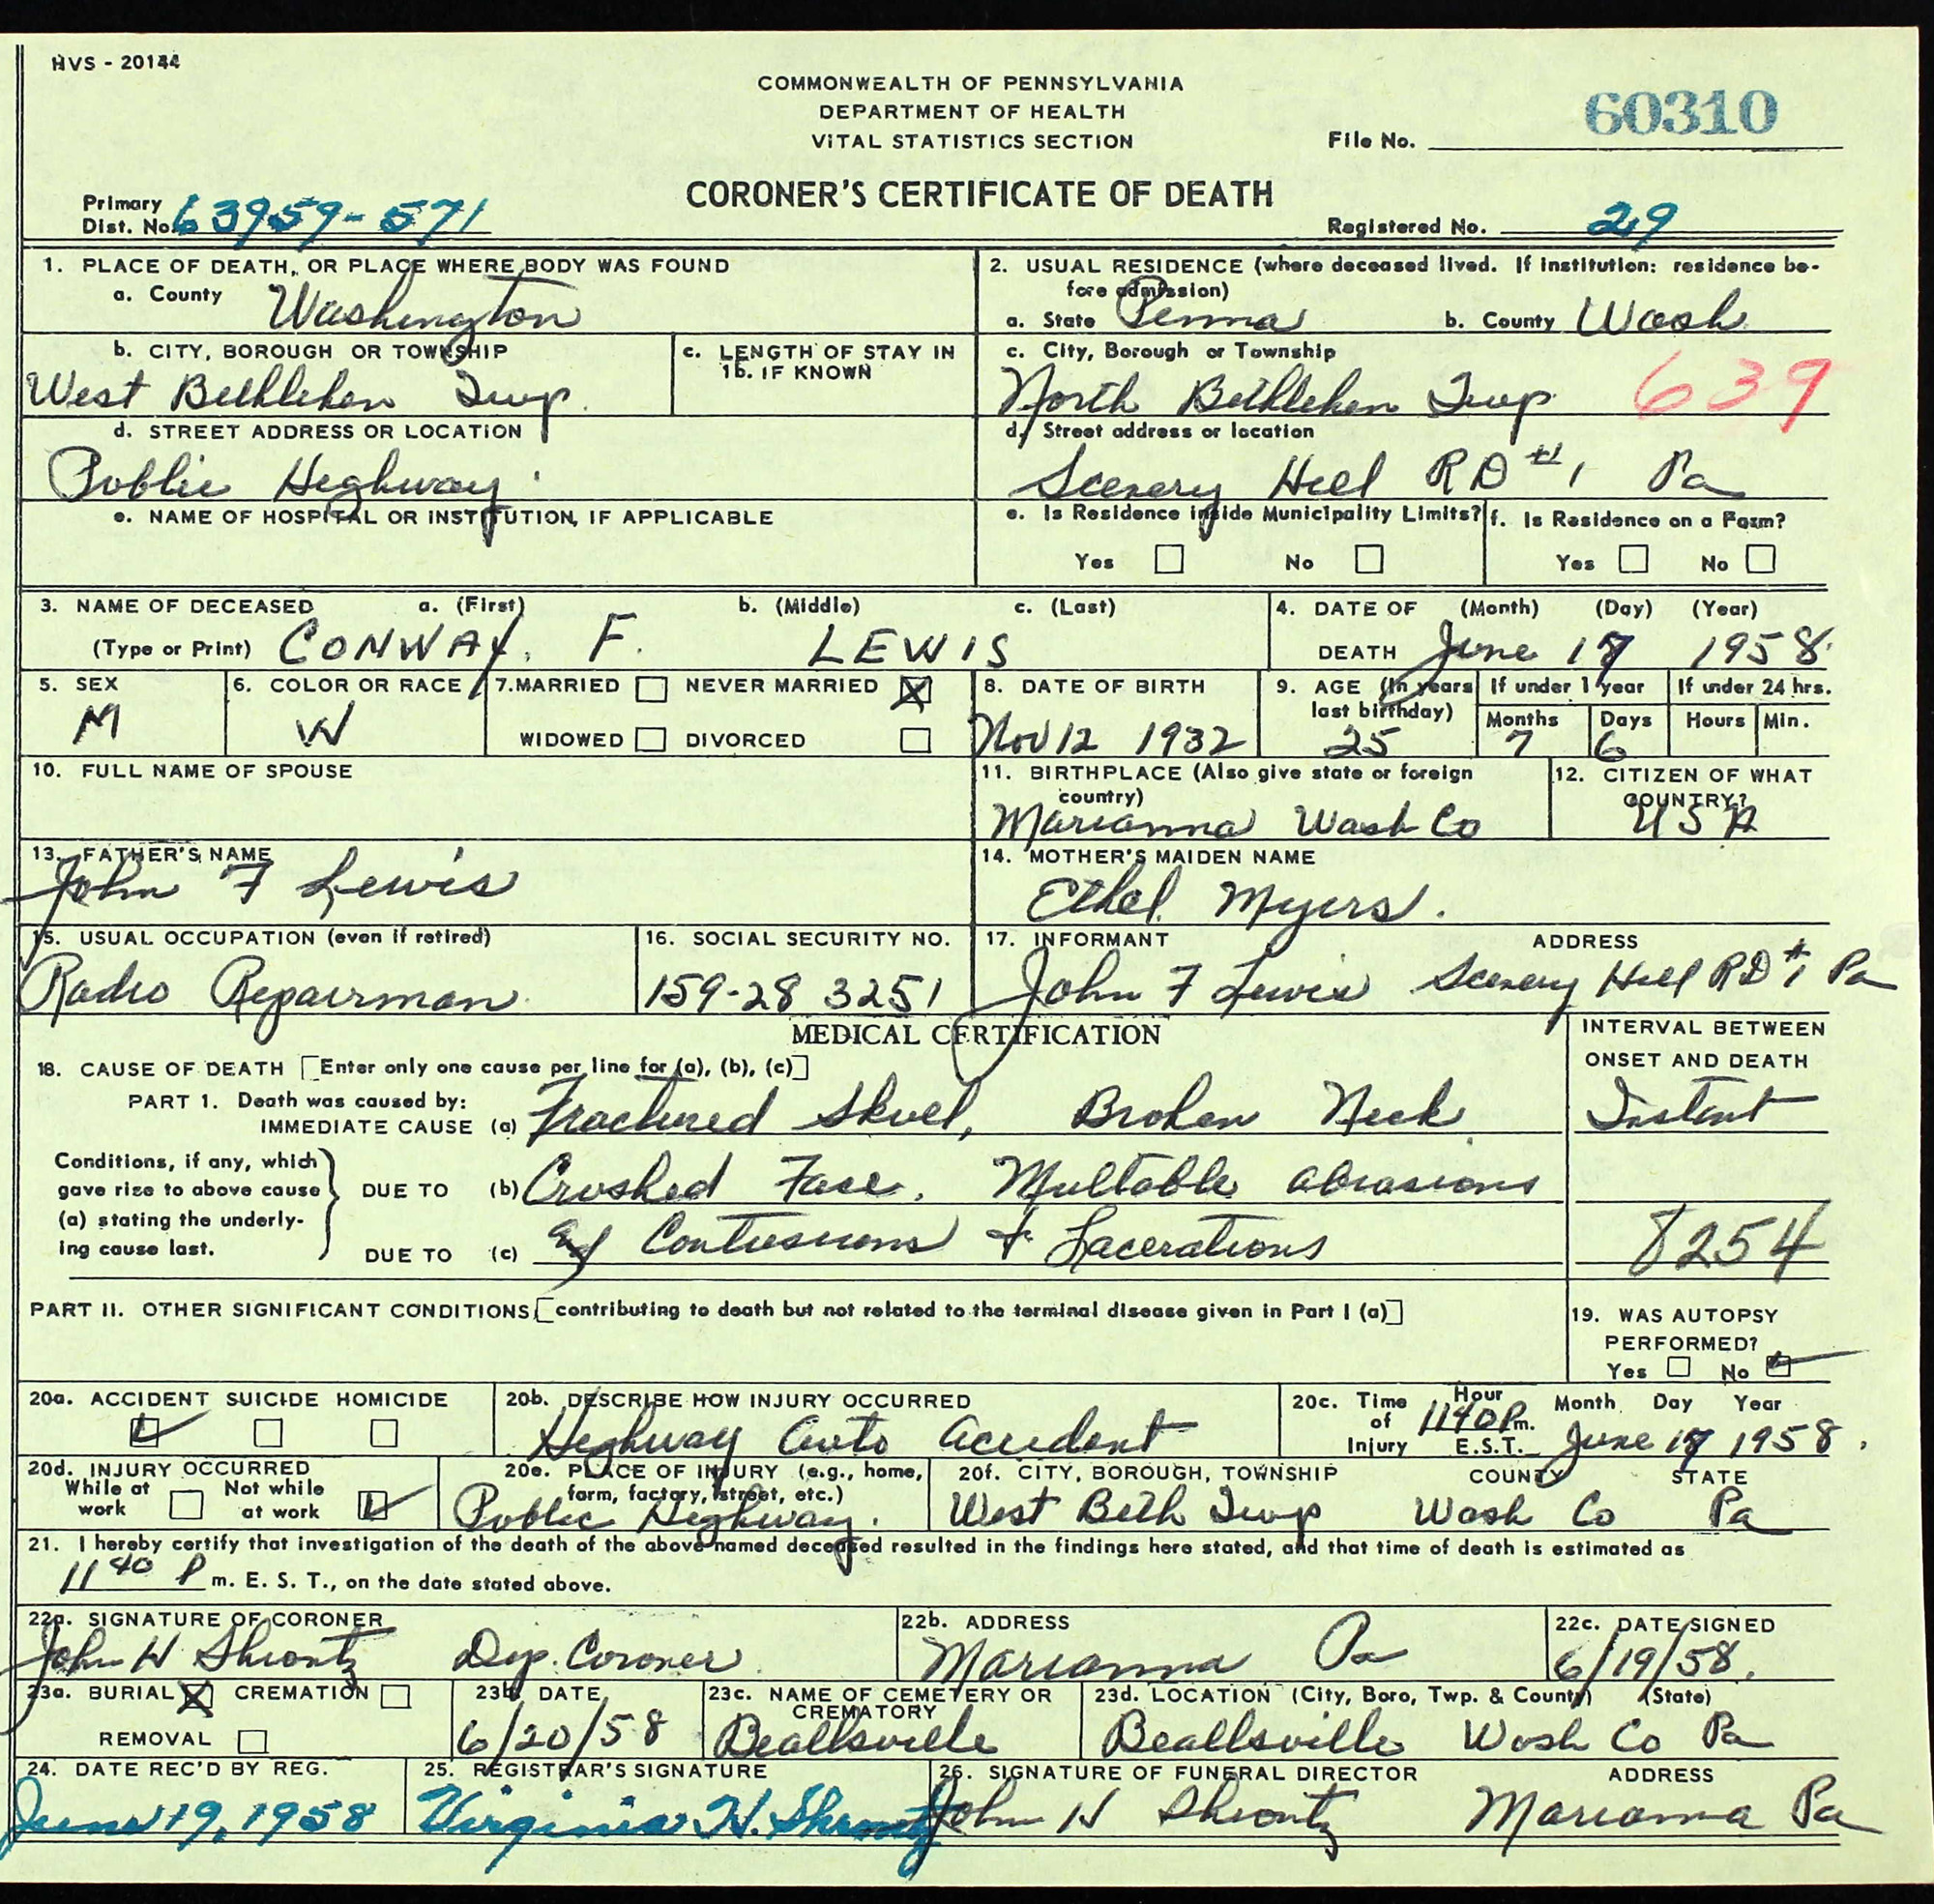 HVS - 20144
COMMONWEALTH OF PENNSYLVANIA
DEPARTMENT OF HEALTH
VITAL STATISTICS SECTION
File No. 60310
CORONER'S CERTIFICATE OF DEATH
Primary
Dist. No. 63959-571
Registered No. 29
1. PLACE OF DEATH, OR PLACE WHERE BODY WAS FOUND
a. County Washington
2. USUAL RESIDENCE (where deceased lived. If institution: residence be-
fore admission)
a. State Penna b. County Wash
b. CITY, BOROUGH OR TOWNSHIP
West Bethlehem Twp.
c. LENGTH OF STAY IN
1b. IF KNOWN
c. City, Borough or Township
North Bethlehem Twp 639
d. STREET ADDRESS OR LOCATION
Public Highway.
d. Street address or location
Scenery Hill RD #1 Pa
e. NAME OF HOSPITAL OR INSTITUTION, IF APPLICABLE
e. Is Residence inside Municipality Limits?
Yes No
f. Is Residence on a Farm?
Yes No
3. NAME OF DECEASED a. (First) b. (Middle) c. (Last)
(Type or Print) CONWAY. F. LEWIS
4. DATE OF (Month) (Day) (Year)
DEATH June 17 1958
5. SEX
M
6. COLOR OR RACE
W
7. MARRIED NEVER MARRIED X
WIDOWED DIVORCED
8. DATE OF BIRTH
Nov 12 1932
9. AGE (In years
last birthday)
25
If under 1 year
Months Days
7 6
If under 24 hrs.
Hours Min.
10. FULL NAME OF SPOUSE
11. BIRTHPLACE (Also give state or foreign
country)
Marianna Wash Co
12. CITIZEN OF WHAT
COUNTRY?
USA
13. FATHER'S NAME
John F Lewis
14. MOTHER'S MAIDEN NAME
Ethel Myers.
15. USUAL OCCUPATION (even if retired)
Radio Repairman
16. SOCIAL SECURITY NO.
159-28 3251
17. INFORMANT ADDRESS
John F Lewis Scenery Hill RD #1 Pa
MEDICAL CERTIFICATION
INTERVAL BETWEEN
ONSET AND DEATH
18. CAUSE OF DEATH [Enter only one cause per line for (a), (b), (c)]
PART 1. Death was caused by:
IMMEDIATE CAUSE (a) Fractured Skuel, Broken Neck Instent
Conditions, if any, which
gave rise to above cause
(a) stating the underly-
ing cause last.
DUE TO (b) Crushed Face. Multable abrasions
DUE TO (c) Contusions & Lacerations
8254
PART II. OTHER SIGNIFICANT CONDITIONS [contributing to death but not related to the terminal disease given in Part I (a)]
19. WAS AUTOPSY
PERFORMED?
Yes No
20a. ACCIDENT SUICIDE HOMICIDE
20b. DESCRIBE HOW INJURY OCCURRED
Highway auto accident
20c. Time
of
Injury
Hour
1140 P m.
E.S.T.
Month Day Year
June 17 1958.
20d. INJURY OCCURRED
While at
work
Not while
at work
20e. PLACE OF INJURY (e.g., home,
farm, factory, street, etc.)
Public Highway.
20f. CITY, BOROUGH, TOWNSHIP COUNTY STATE
West Beth Twp Wash Co Pa
21. I hereby certify that investigation of the death of the above named deceased resulted in the findings here stated, and that time of death is estimated as
11 40 P m. E. S. T., on the date stated above.
22a. SIGNATURE OF CORONER
John H Shrontz Dep. Coroner
22b. ADDRESS
Marianna Pa
22c. DATE SIGNED
6/19/58.
23a. BURIAL X CREMATION
REMOVAL
23b. DATE
6/20/58
23c. NAME OF CEMETERY OR
CREMATORY
Beallsville
23d. LOCATION (City, Boro, Twp. & County) (State)
Beallsville Wash Co Pa
24. DATE REC'D BY REG.
June 19, 1958
25. REGISTRAR'S SIGNATURE
Virginia H. Shrontz
26. SIGNATURE OF FUNERAL DIRECTOR ADDRESS
John H Shrontz Marianna Pa